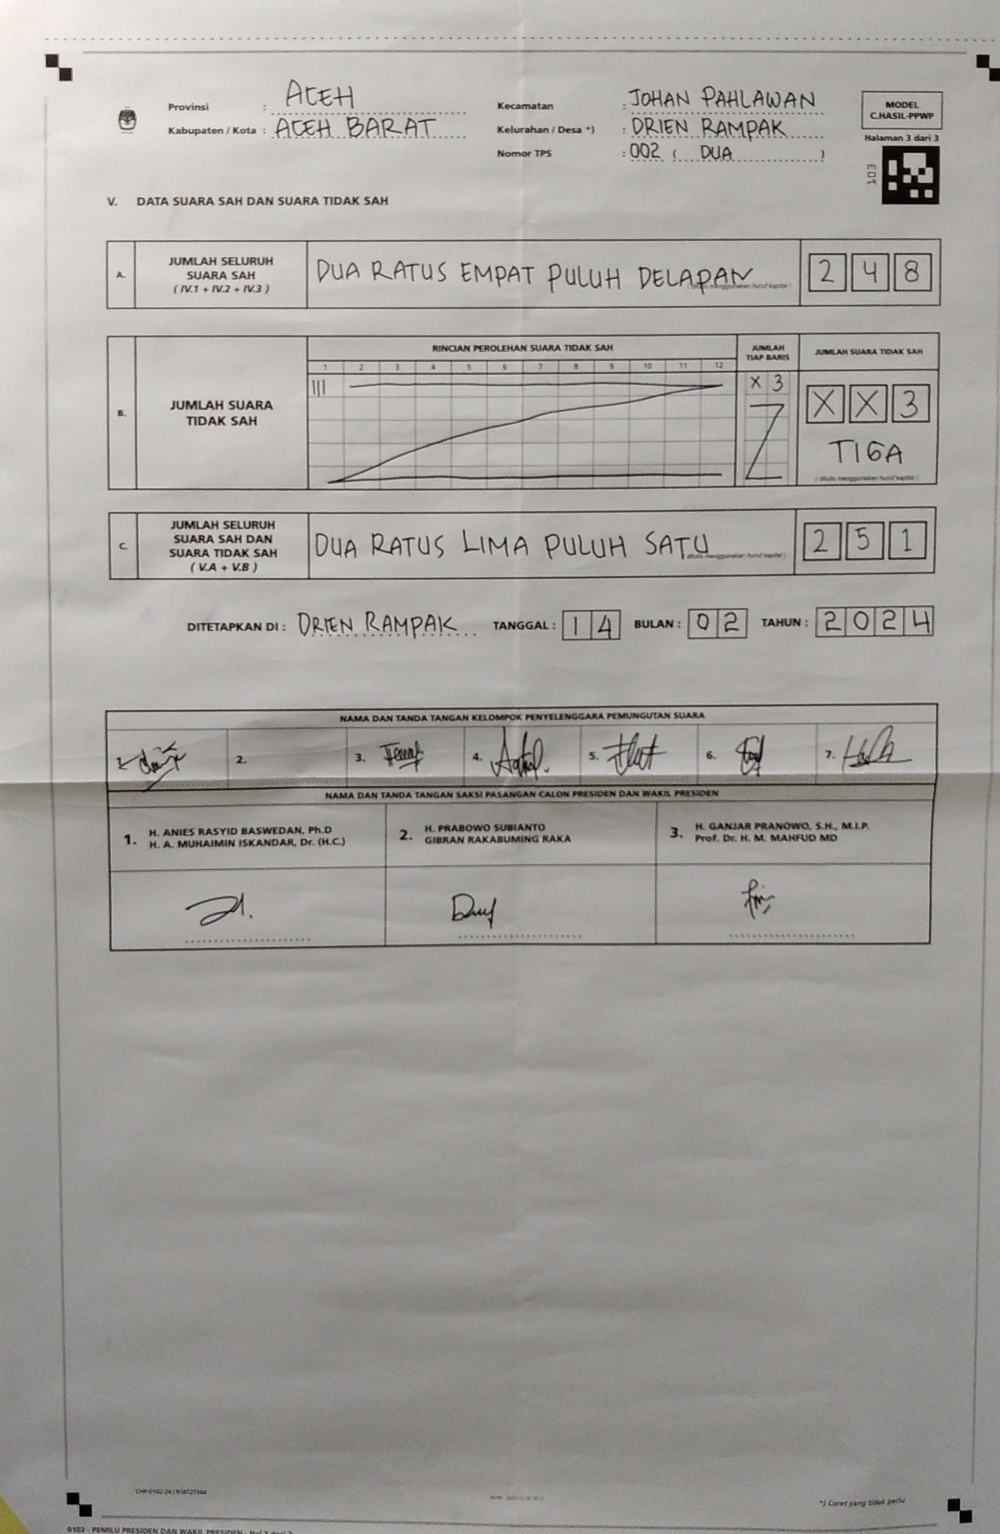 Provinsi : ACEH
Kabupaten / Kota : ACEH BARAT
Kecamatan : JOHAN PAHLAWAN
Kelurahan / Desa *) : DRIEN RAMPAK
Nomor TPS : 002 ( DUA )
MODEL
C.HASIL-PPWP
Halaman 3 dari 3
V. DATA SUARA SAH DAN SUARA TIDAK SAH
A. JUMLAH SELURUH
SUARA SAH
( IV.1 + IV.2 + IV.3 )
DUA RATUS EMPAT PULUH DELAPAN
( ditulis menggunakan huruf kapital )
2 4 8
B. JUMLAH SUARA
TIDAK SAH
RINCIAN PEROLEHAN SUARA TIDAK SAH
1 2 3 4 5 6 7 8 9 10 11 12
JUMLAH
TIAP BARIS
X 3
JUMLAH SUARA TIDAK SAH
X X 3
TIGA
( ditulis menggunakan huruf kapital )
C. JUMLAH SELURUH
SUARA SAH DAN
SUARA TIDAK SAH
( V.A + V.B )
DUA RATUS LIMA PULUH SATU
( ditulis menggunakan huruf kapital )
2 5 1
DITETAPKAN DI : DRIEN RAMPAK TANGGAL : 1 4 BULAN : 0 2 TAHUN : 2 0 2 4
NAMA DAN TANDA TANGAN KELOMPOK PENYELENGGARA PEMUNGUTAN SUARA
1. 2. 3. 4. 5. 6. 7.
NAMA DAN TANDA TANGAN SAKSI PASANGAN CALON PRESIDEN DAN WAKIL PRESIDEN
1. H. ANIES RASYID BASWEDAN, Ph.D
H. A. MUHAIMIN ISKANDAR, Dr. (H.C.)
2. H. PRABOWO SUBIANTO
GIBRAN RAKABUMING RAKA
3. H. GANJAR PRANOWO, S.H., M.I.P.
Prof. Dr. H. M. MAHFUD MD
*) Coret yang tidak perlu
0102 - PEMILU PRESIDEN DAN WAKIL PRESIDEN - Hal 3 dari 3